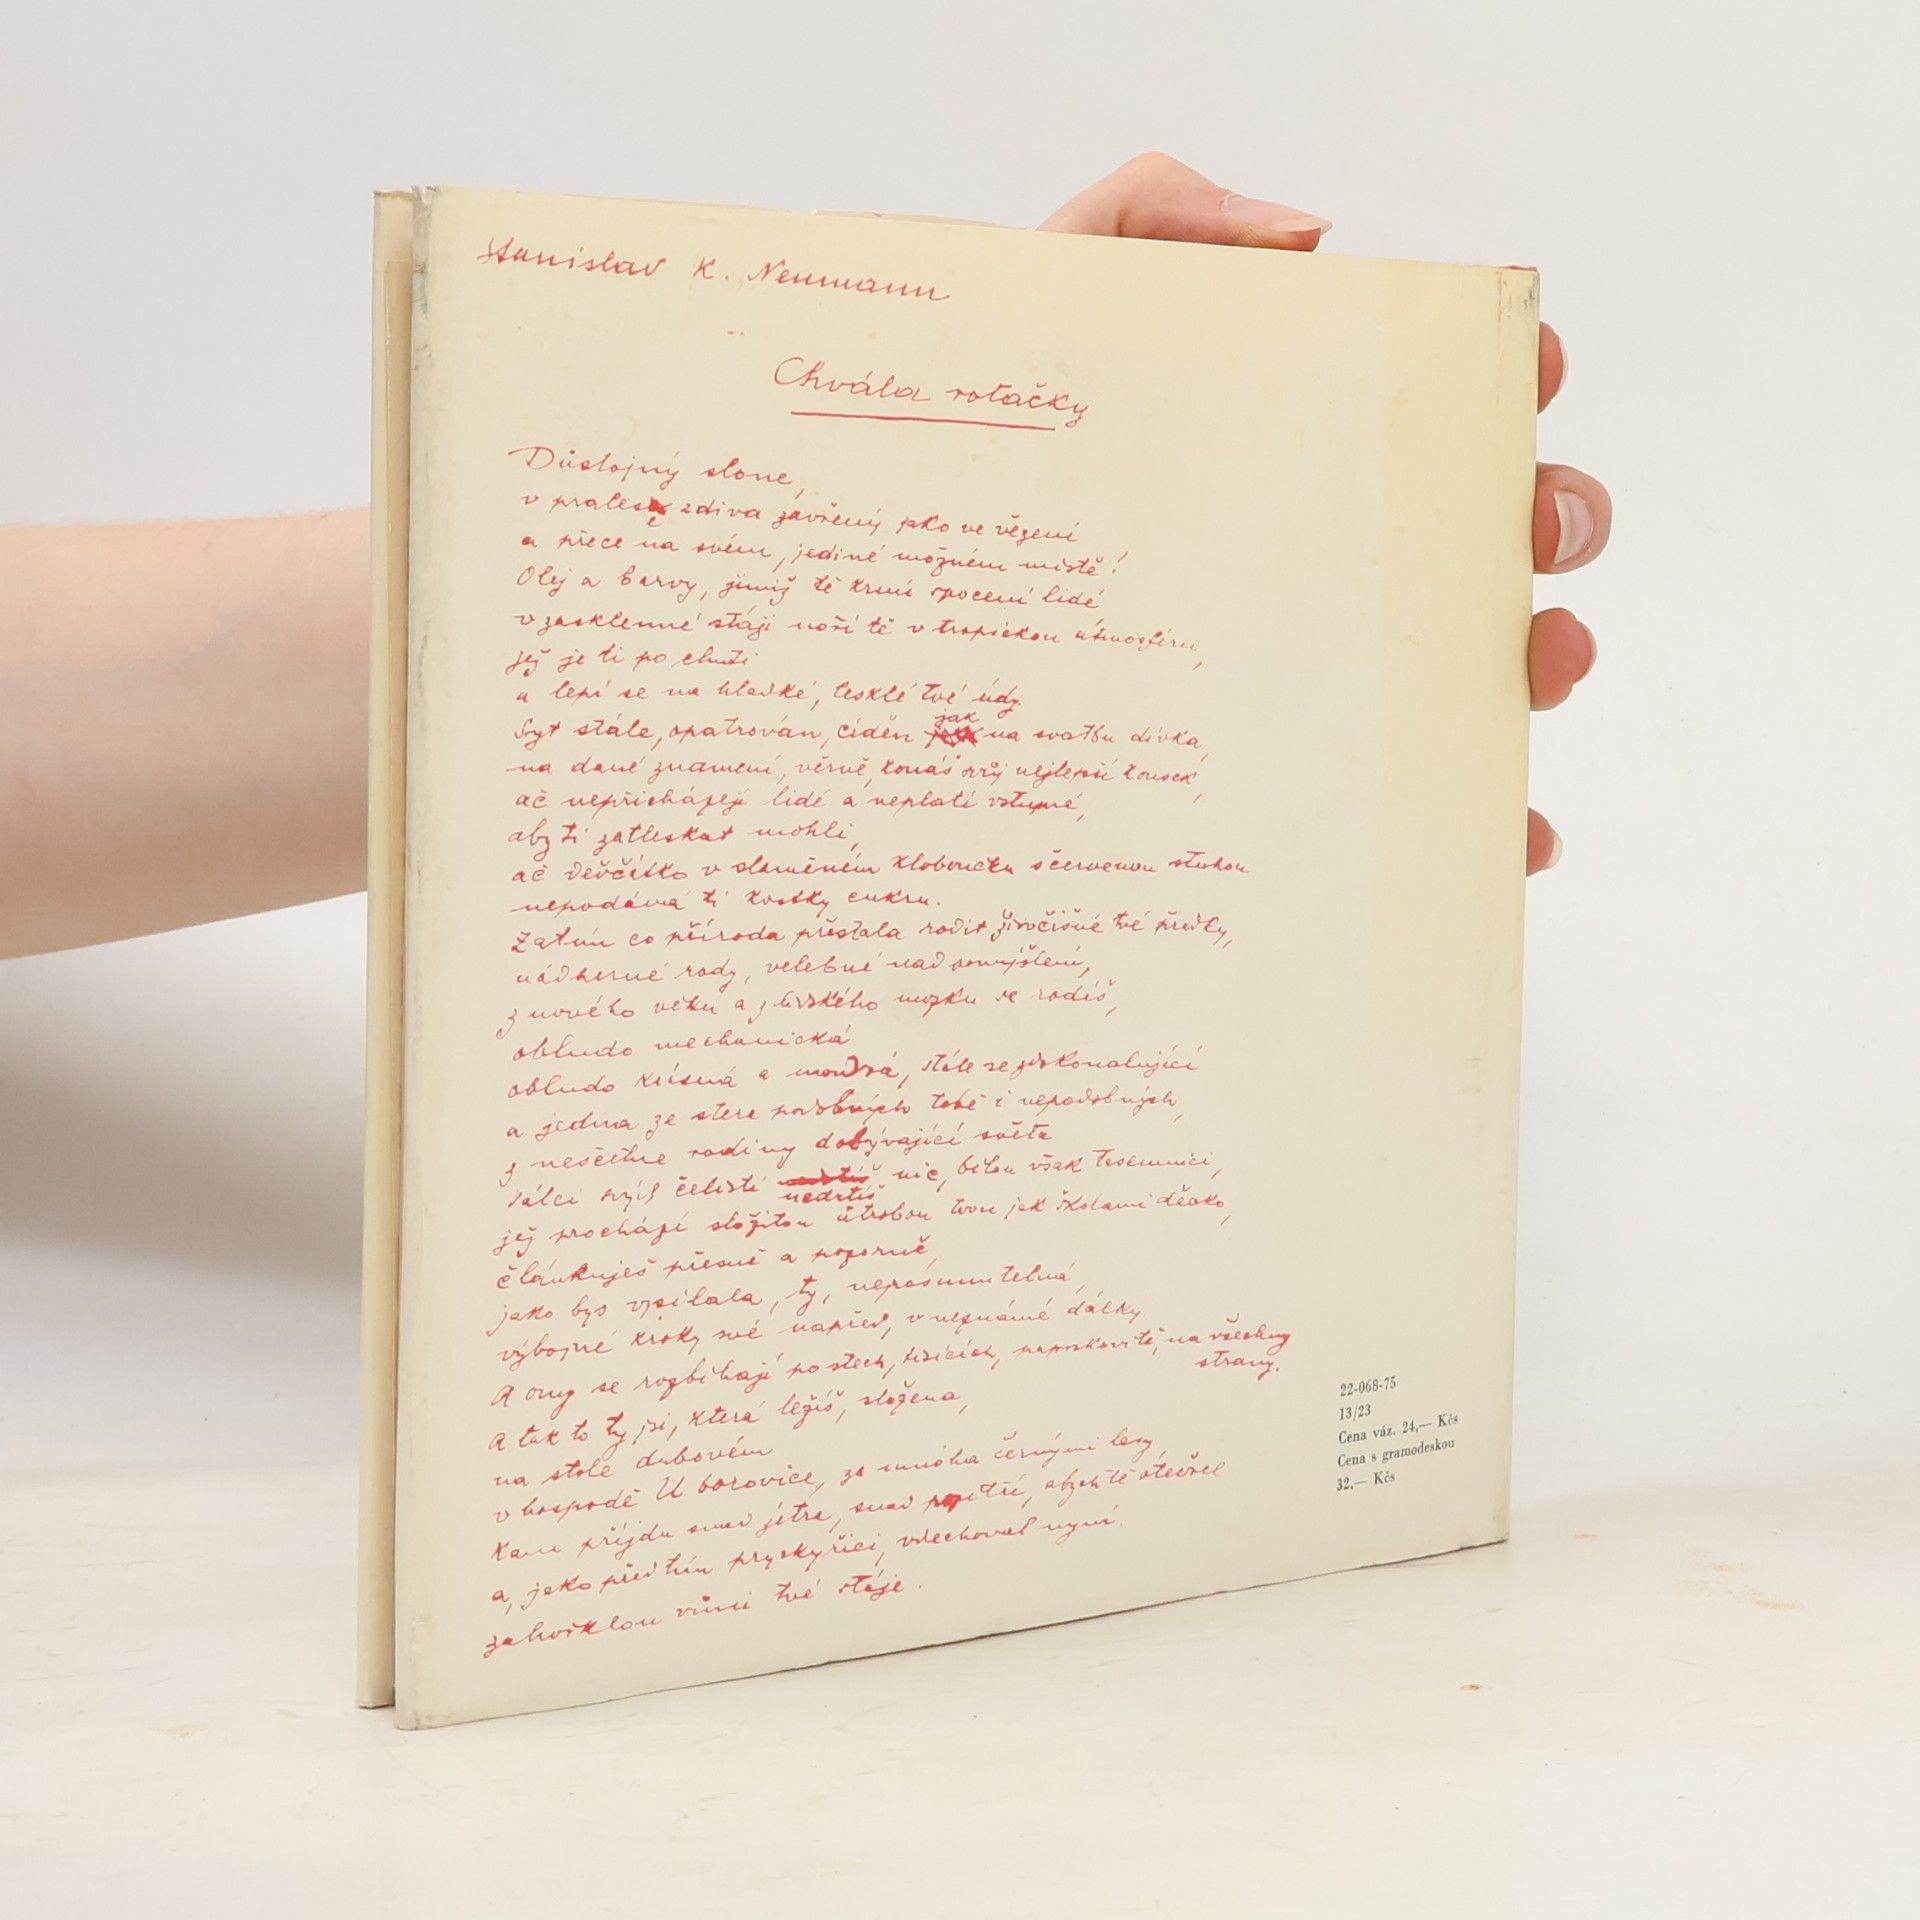 Stanislav K. Neumann
Chvála rotačky
Důstojný slone,
v pralese zdiva zavřený jako ve vězení
a přece na svém, jediné možném místě!
Olej a barvy, jimiž tě krmí spocení lidé
v zasklenné stáji noří tě v tropickou atmosféru,
jež je ti po chuti
a lepí se na hladké, lesklé tvé údy.
Syt stále, opatrován, cíděn jak na svatbu dívka,
na dané znamení, věrně, konáš svůj nejlepší kousek,
ač nepřicházejí lidé a neplatí vstupné,
aby ti zatleskat mohli,
ač děvčátko v slaměném kloboučku s červenou stuhou
nepodává ti kostky cukru.
Zatím co příroda přestala rodit živočišné tvé předky,
nádherné rody, velebné nad pomyšlení,
z nového věku a z lidského mozku se rodíš,
obludo mechanická
obludo krásná a moudrá, stále se zdokonalující
a jedna ze stera podobných tobě i nepodobných,
z nesčetné rodiny dobývající světa
Válci svých čelistí nedrtíš nic, bělou však tasemnici,
jež prochází složitou útrobou tvou jak školami děcko,
článkuješ přesně a pozorně,
jako bys vysílala, ty, nepřesunutelná,
výbojné kroky své napřed, v neznámé dálky
A ony se rozbíhají po stech, tisících, paprskovitě, na všechny
strany.
A tak to ty jsi, která ležíš, složena,
na stole dubovém
v hospodě U borovice, za mnoha černými lesy,
kam přijdu snad zítra, snad pozítří, abych tě otevřel
a, jako předtím pryskyřici, vdechoval nyní
zahořklou vůni tvé stáje.
22-068-75
13/23
Cena váz. 24,— Kčs
Cena s gramodeskou
32,— Kčs